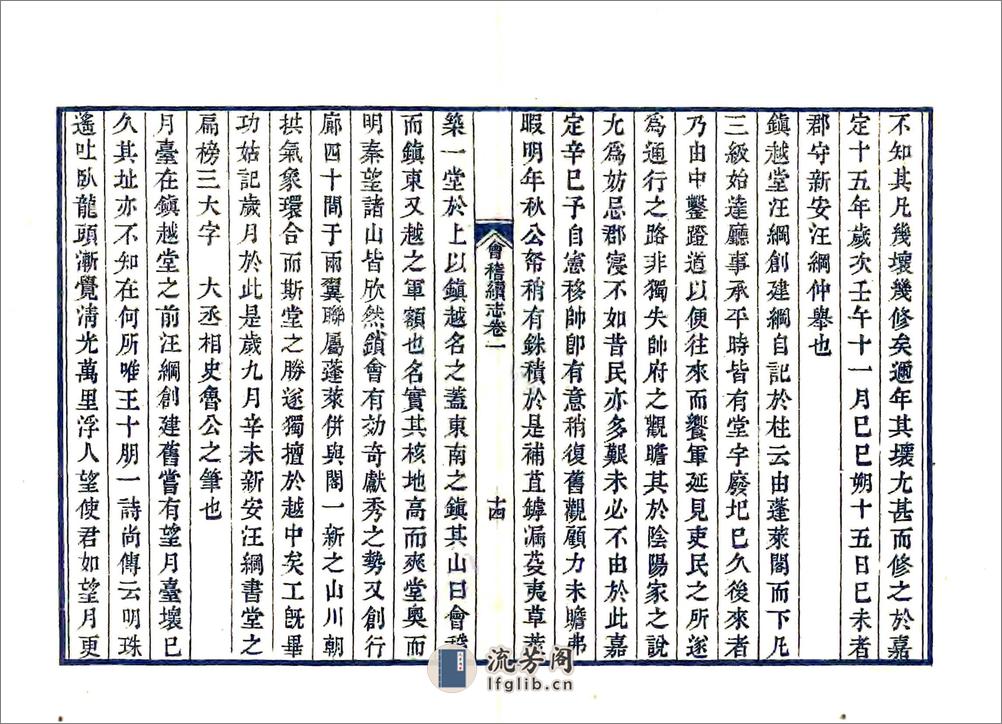 不知其凡幾壞幾修矣邇年其壞尤甚而修之於嘉
定十五年歲次壬午十一月巳巳朔十五日巳未者
郡守新安汪綱仲舉也
鎮越堂汪綱創建綱自記於柱云由蓬萊閣而下凡
三級始達廳事承平時皆有堂字廢圯巳久後來者
乃由中鑿磴道以便往來而饗軍延見吏民之所遂
爲通行之路非獨失帥府之觀瞻其於陰陽家之說
尤爲妨忌郡寖不如昔民亦多艱未必不由於此嘉
定辛巳予自憲移帥卽有意稍復舊觀顧力未贍弗
暇明年秋公帑稍有銖積於是補苴罅漏芟夷草萊
會稽續志卷一
十四
築一堂於上以鎮越名之蓋東南之鎮其山曰會稽
而鎮東又越之軍額也名實其核地高而爽堂奧而
明秦望諸山皆欣然鎖會有効奇獻秀之勢又創行
廊四十間于兩翼聯屬蓬萊併與閣一新之山川朝
拱氣象環合而斯堂之勝遂獨擅於越中矣工旣畢
功姑記歲月於此是歲九月辛未新安汪綱書堂之
扁榜三大字　大丞相史魯公之筆也
月臺在鎮越堂之前汪綱創建舊嘗有望月臺壞巳
久其址亦不知在何所唯王十朋一詩尚傳云明珠
遙吐臥龍頭漸覺淸光萬里浮人望使君如望月更
流芳阁
lfglib.cn